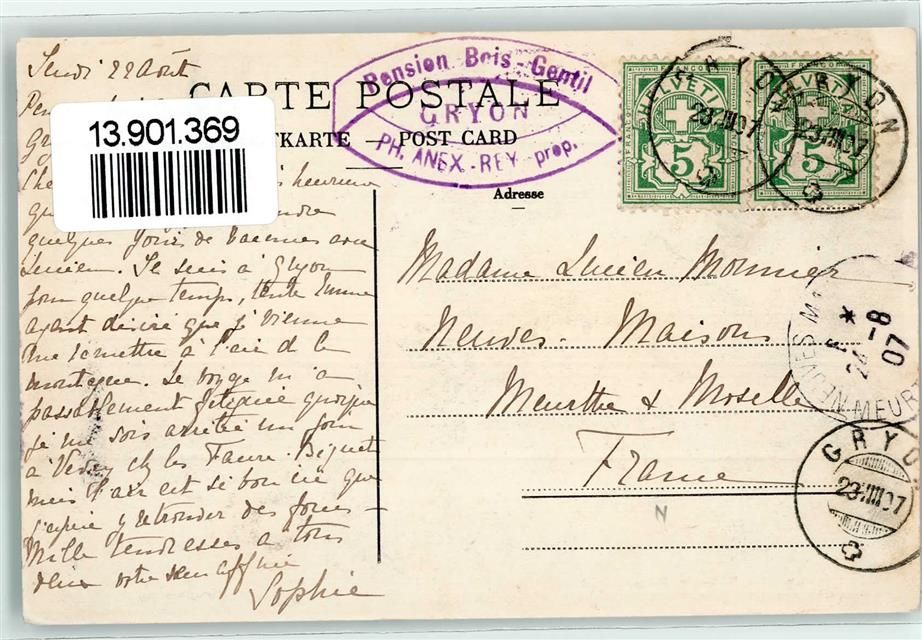 Jeudi 22 Août
CARTE POSTALE
TKARTE — POST CARD
Adresse
Pension Bois-Gentil
GRYON
PH. ANEX-REY prop.
HELVETIA
FRANCO
5
HELVETIA
FRANCO
5
GRYON
23.VIII.07
GRYON
23.VIII.07
13.901.369
heureuse
quelques jours de vacances avec
Lucien. Je suis à Gryon
pour quelque temps, tante Emma
ayant désiré que je vienne
me remettre à l'air de la
montagne. Le voyage m'a
passablement fatiguée quoique
je me sois arrêtée un jour
à Vevey ch les Favre. Biguet
mais l'air est si bon ici que
j'espère y retrouver des forces —
Mille tendresses à tous
deux votre
Sophie
Madame Lucien Monnier
Neuves-Maisons
Meurthe & Moselle
France
N
24 -8
07
GRYO
23.VIII.07